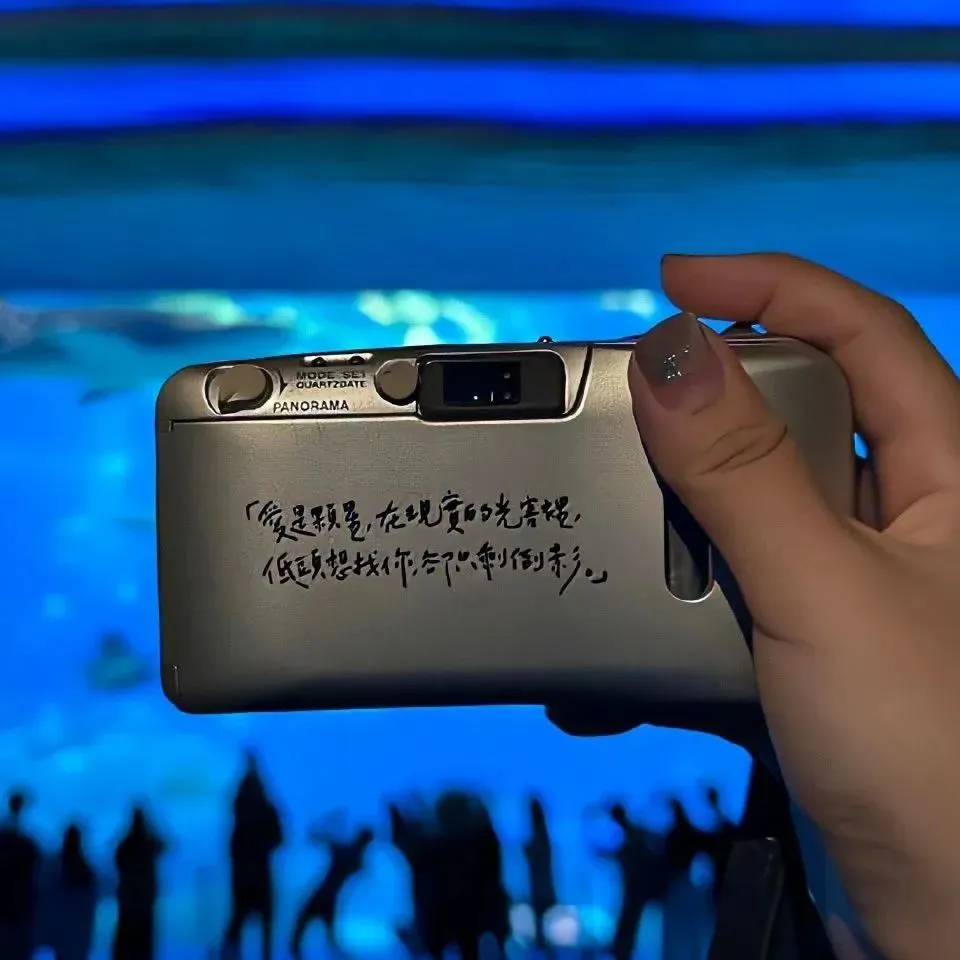 MODE SET
QUARTZDATE
PANORAMA
「愛是顆星,在現實的光害裡,
低頭想找你,卻只剩倒影。」